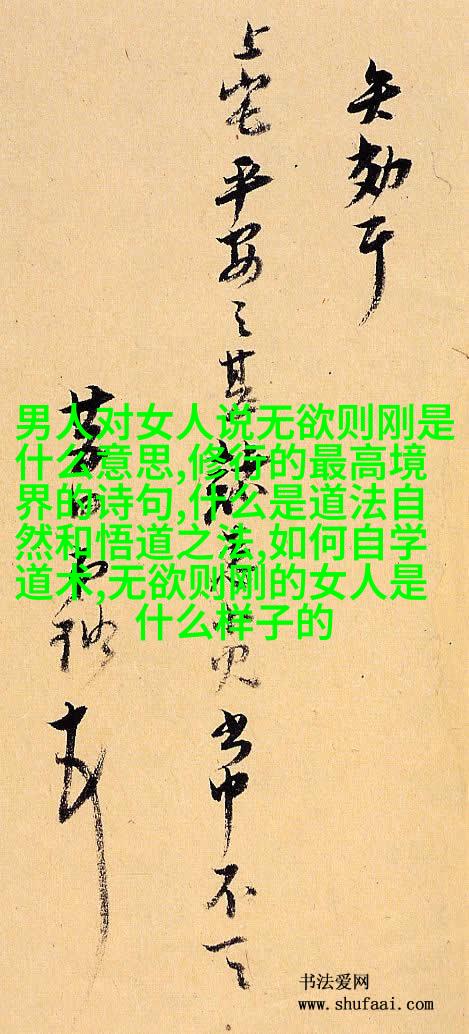 上宅平安之 中不
男人对女人说无欲则刚是
什么意思,修行的最高境
界的诗句,什么是道法自
然和悟道之法,如何自学
道术,无欲则刚的女人是
什么样子的
书法爱网
www.shufaai.com